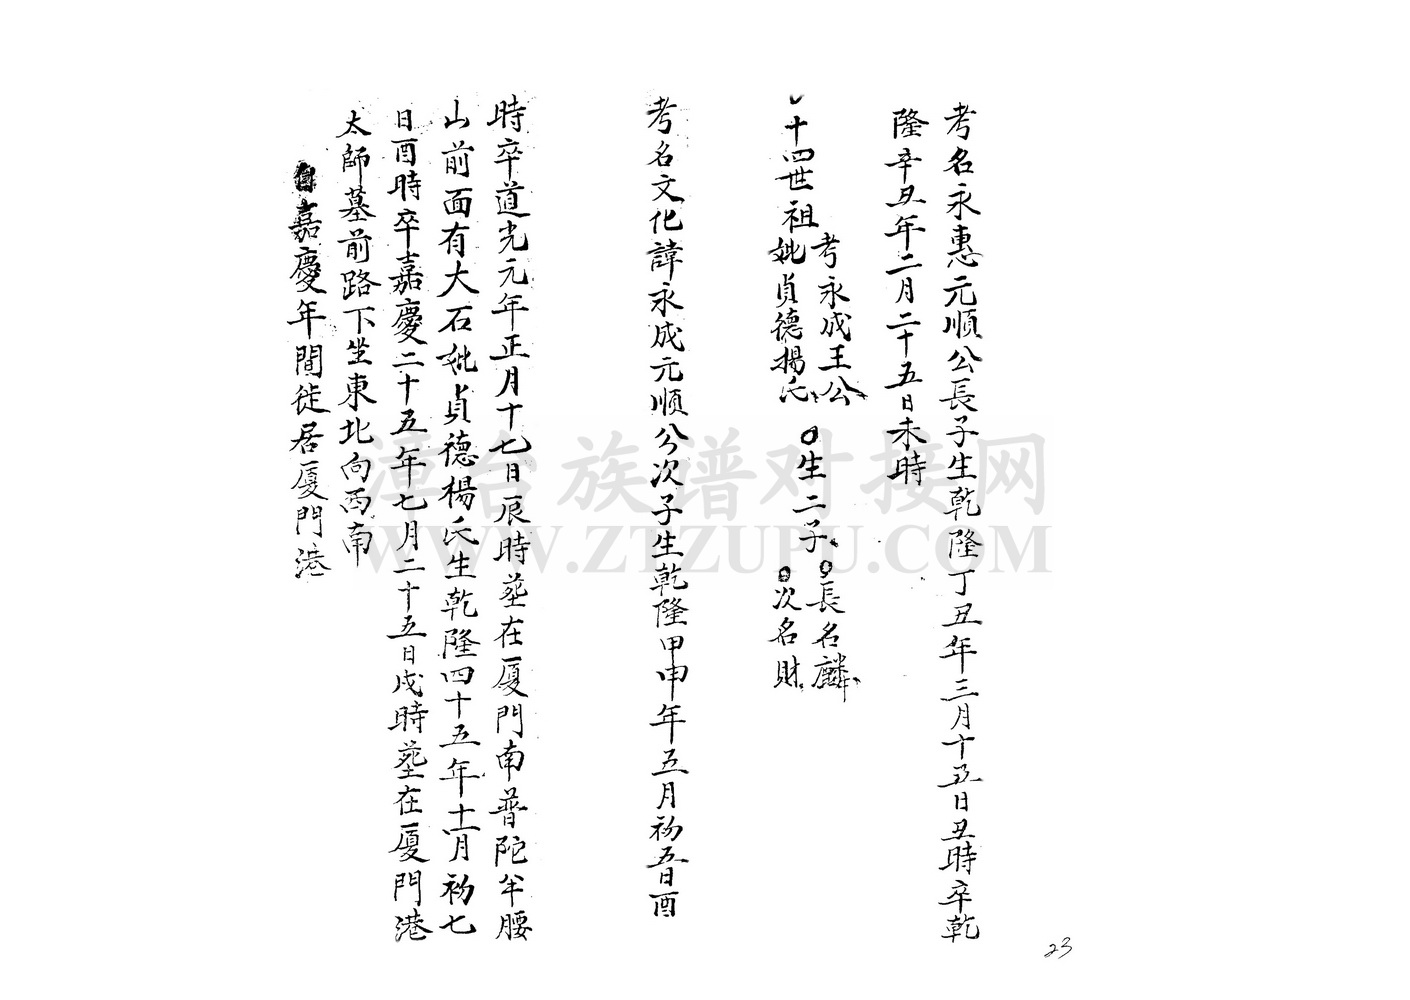 考名永惠元順公長子生乾隆丁丑年三月十五日丑時卒乾
隆辛丑年二月二十五日未時
十四世祖
考永成王公
妣貞德楊氏
生二子
長名麟
次名財
考名文化諱永成元順公次子生乾隆甲申年五月初五日酉
時卒道光元年正月十七日辰時塟在厦門南普陀半腰
山前面有大石妣貞德楊氏生乾隆四十五年十一月初七
日酉時卒嘉慶二十五年七月二十五日戌時塟在厦門港
太師墓前路下坐東北向西南
自嘉慶年間徙居厦門港
漳台族谱对接网
WWW.ZTZUPU.COM
23